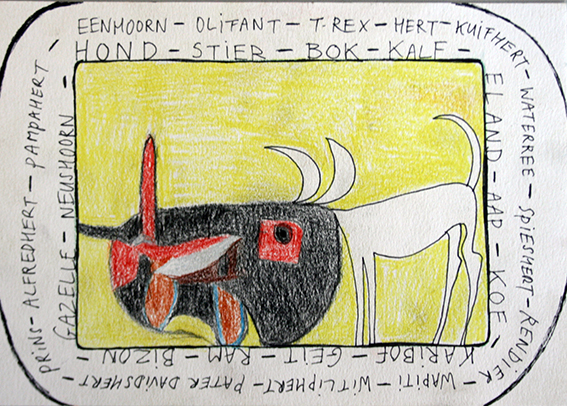 EENHOORN – OLIFANT – T.REX – HERT – KUIFHERT – WATERREE – SPIESHERT – RENDIER –
WAPITI – WITLIPHERT – PATER DAVIDSHERT
PRINS – ALFREDHERT – PAMPAHERT –
HOND – STIER – BOK – KALF –
ELAND – AAP – KOE –
KARIBOE – GEIT – RAM – BIZON –
GAZELLE – NEUSHOORN –